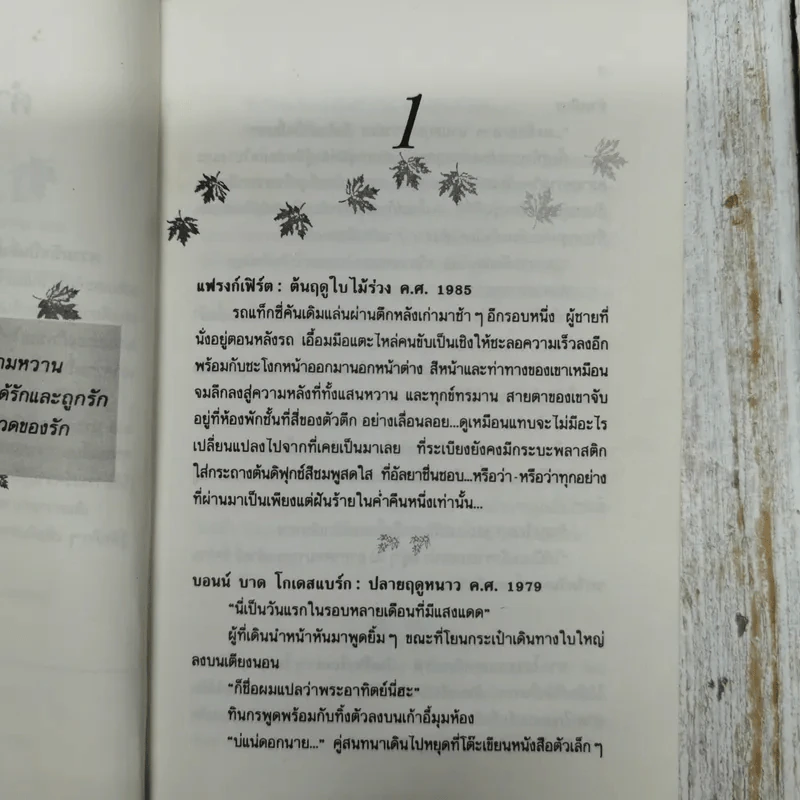 ามหวาน
ด้รักและถูกรัก
วดของรัก
1
แฟรงก์เฟิร์ต : ต้นฤดูใบไม้ร่วง ค.ศ. 1985
รถแท็กซี่คันเดิมแล่นผ่านตึกหลังเก่ามาช้า ๆ อีกรอบหนึ่ง ผู้ชายที่
นั่งอยู่ตอนหลังรถ เอื้อมมือแตะไหล่คนขับเป็นเชิงให้ชะลอความเร็วลงอีก
พร้อมกับชะโงกหน้าออกมานอกหน้าต่าง สีหน้าและท่าทางของเขาเหมือน
จมลึกลงสู่ความหลังที่ทั้งแสนหวาน และทุกข์ทรมาน สายตาของเขาจับ
อยู่ที่ห้องพักชั้นที่สี่ของตัวตึก อย่างเลื่อนลอย...ดูเหมือนแทบจะไม่มีอะไร
เปลี่ยนแปลงไปจากที่เคยเป็นมาเลย ที่ระเบียงยังคงมีกระบะพลาสติก
ใส่กระถางต้นดิฟุกซ์สีชมพูสดใส ที่อัลยาชื่นชอบ...หรือว่า - หรือว่าทุกอย่าง
ที่ผ่านมาเป็นเพียงแต่ฝันร้ายในค่ำคืนหนึ่งเท่านั้น...
บอนน์ บาด โกเดสแบร์ก : ปลายฤดูหนาว ค.ศ. 1979
“นี่เป็นวันแรกในรอบหลายเดือนที่มีแสงแดด”
ผู้ที่เดินนำหน้าหันมาพูดยิ้ม ๆ ขณะที่โยนกระเป๋าเดินทางใบใหญ่
ลงบนเตียงนอน
“ก็ชื่อผมแปลว่าพระอาทิตย์นี่ฮะ”
ทินกรพูดพร้อมกับทิ้งตัวลงบนเก้าอี้มุมห้อง
“บ่แน่ดอกนาย...” คู่สนทนาเดินไปหยุดที่โต๊ะเขียนหนังสือตัวเล็ก ๆ